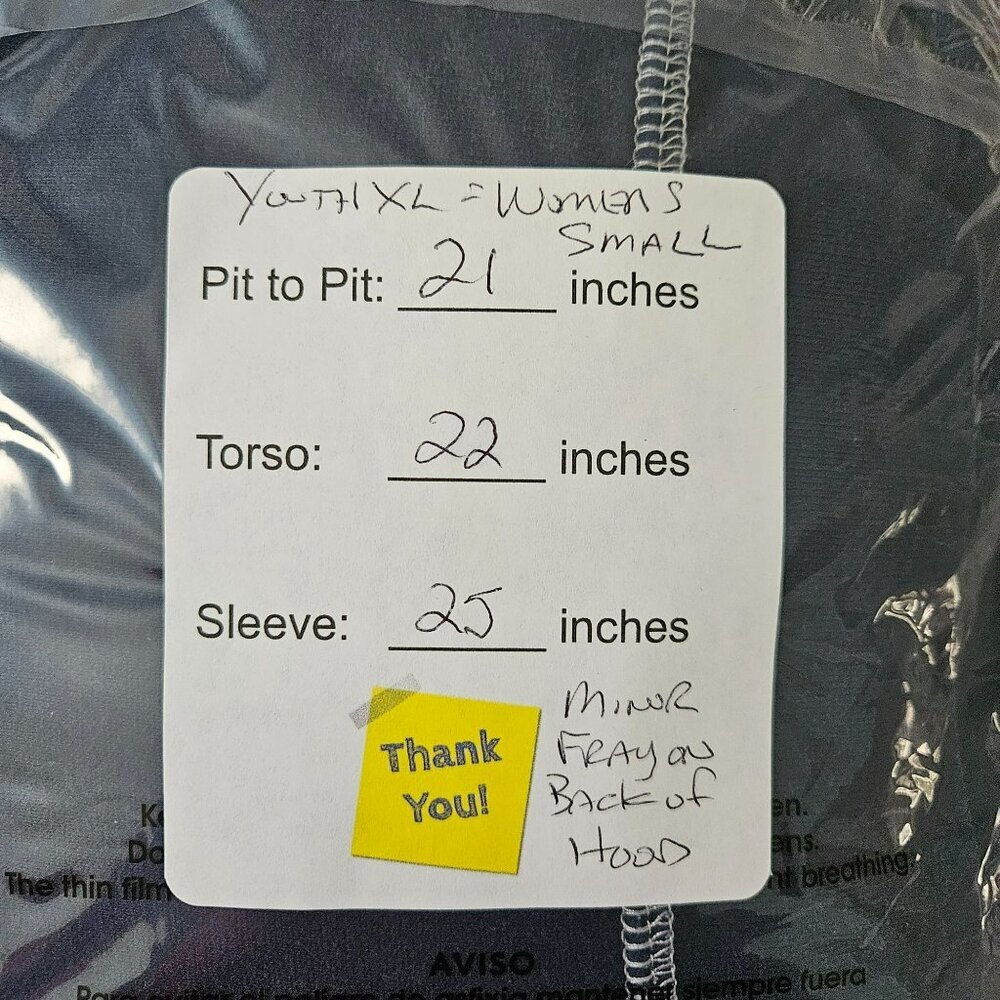 YOUTH XL = WOMENS
SMALL
Pit to Pit: 21 inches
Torso: 22 inches
Sleeve: 25 inches
Thank
You!
MINOR
FRAY ON
BACK OF
HOOD
en.
Do
ens.
The thin film
nt breathing.
AVISO
siempre fuera